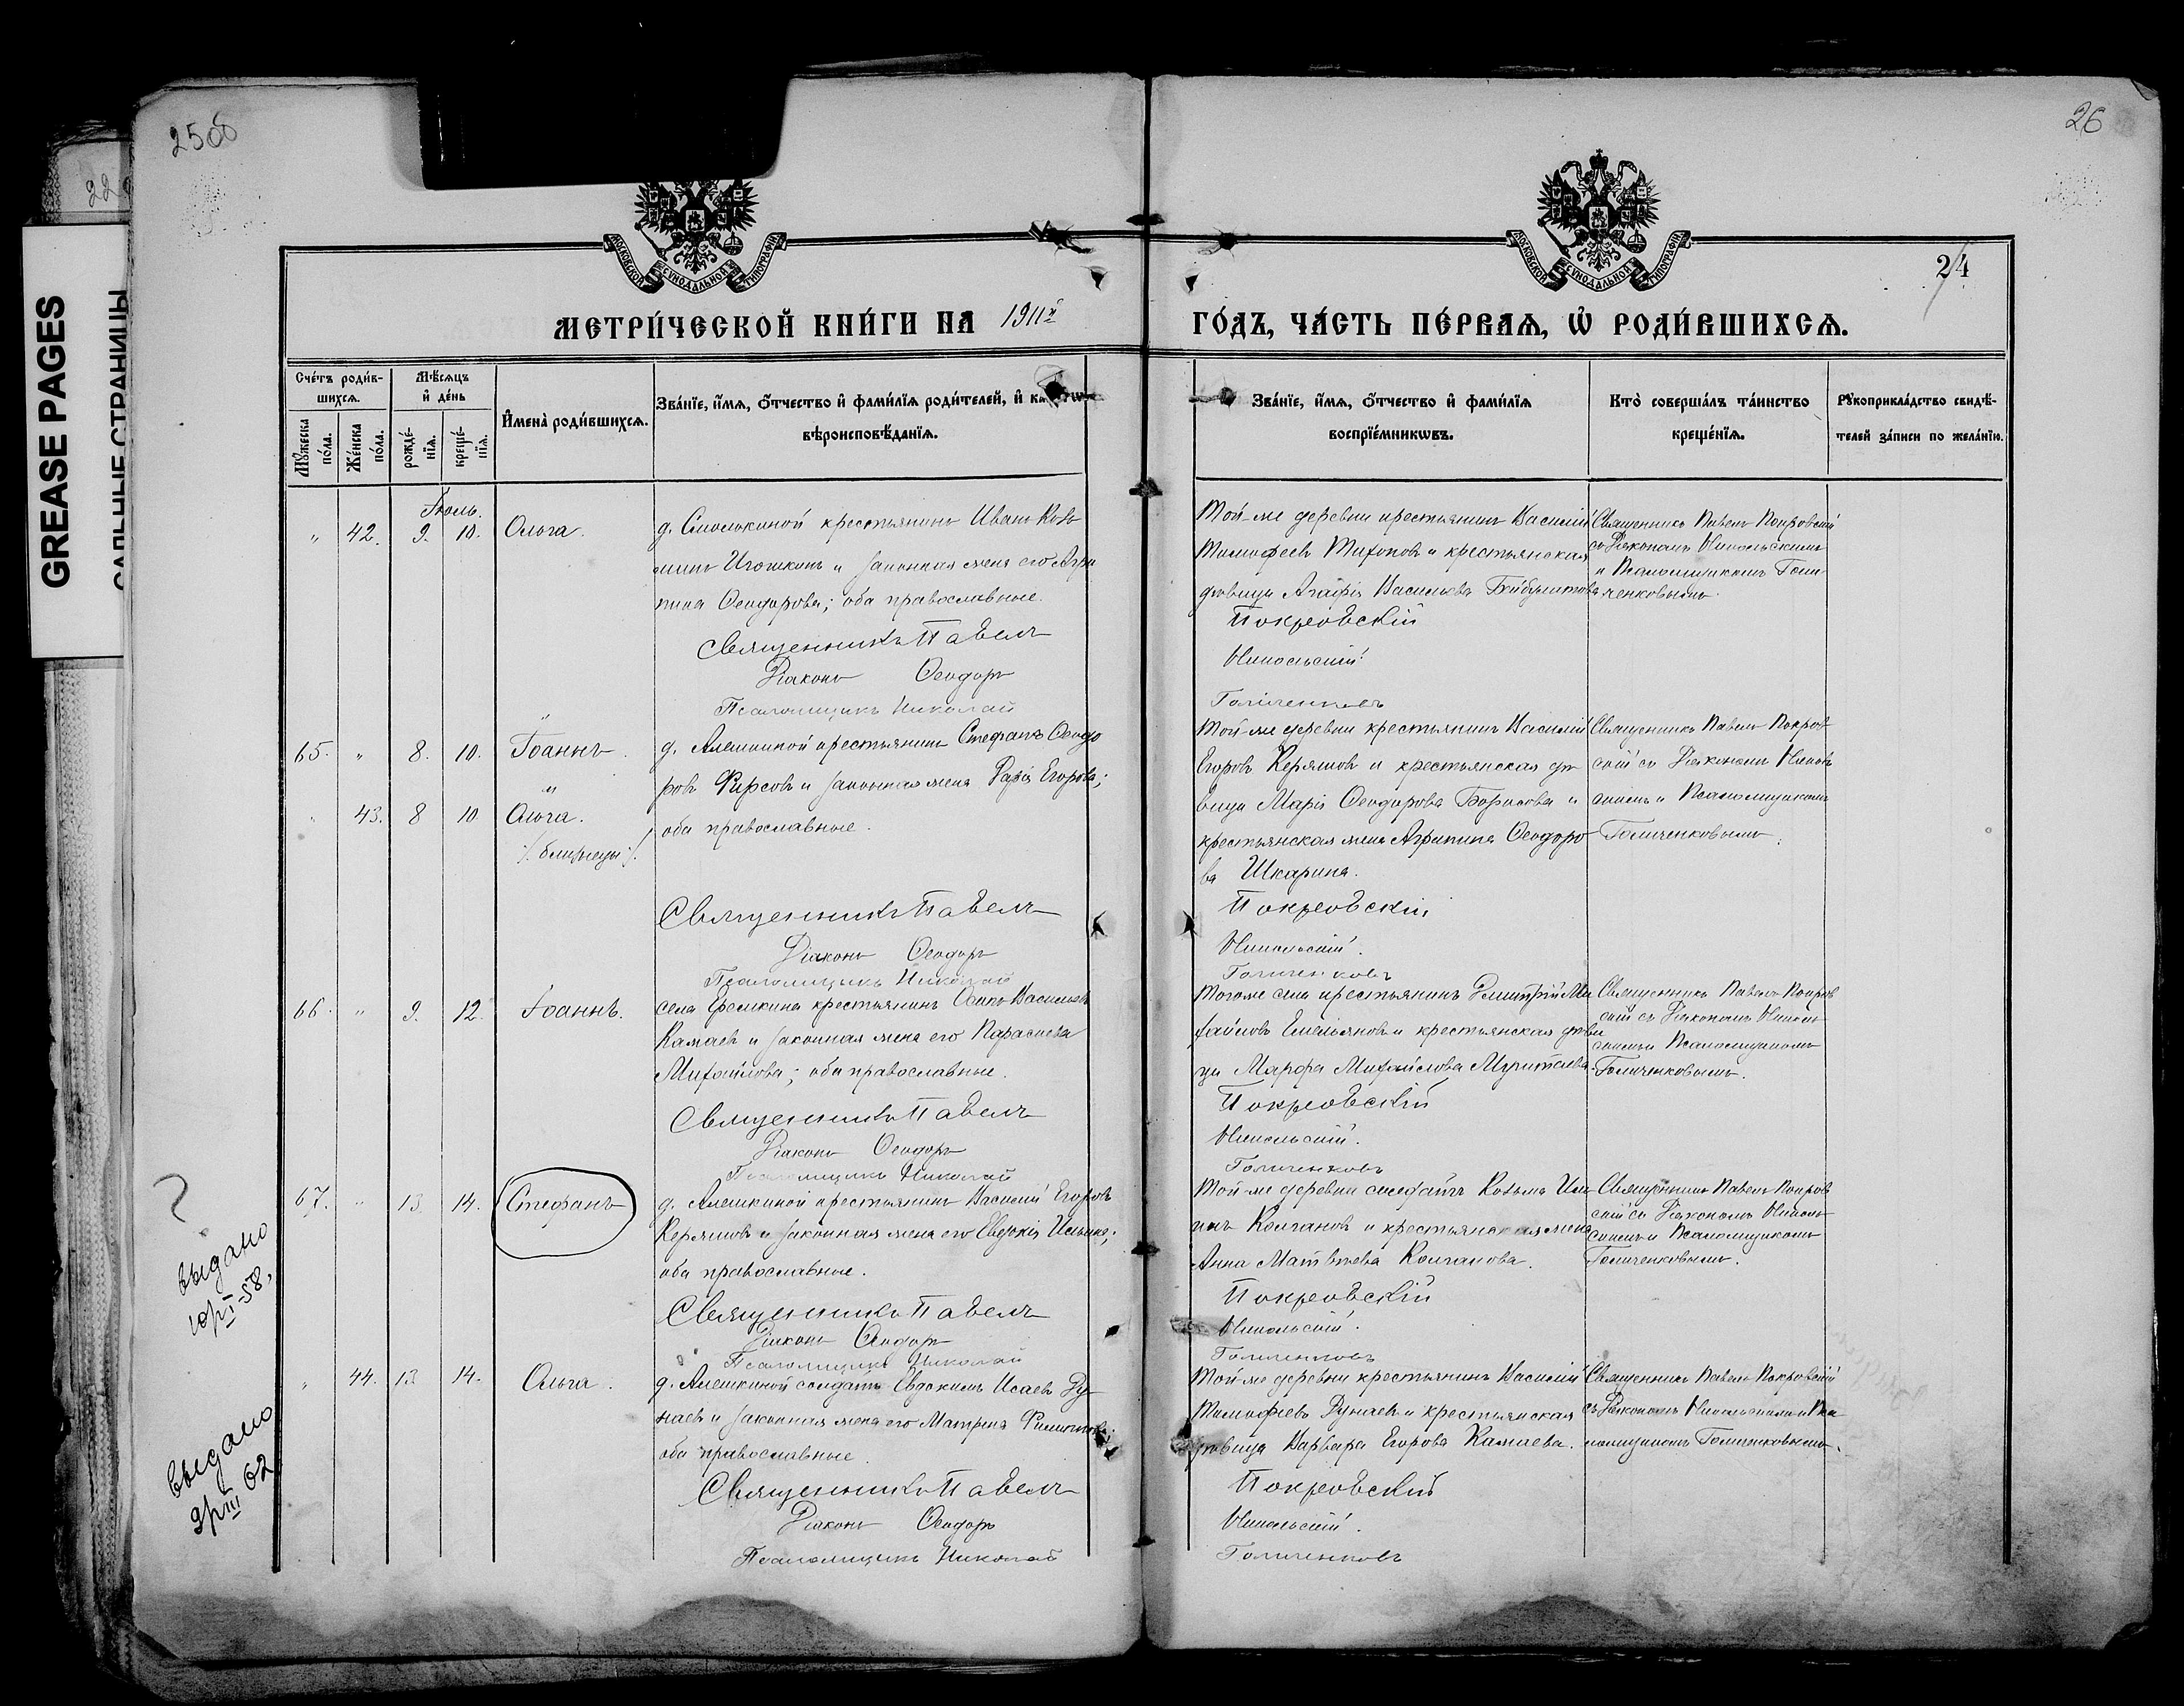 2508
26
22
GREASE PAGES
САЛЬНЫЕ СТРАНИЦЫ
МОСКОВСКОЙ СѴНОДАЛЬНОЙ ТИПОГРАФІИ
МОСКОВСКОЙ СѴНОДАЛЬНОЙ ТИПОГРАФІИ
24
МЕТРИ́ЧЕСКОЙ КНИ́ГИ НА 1911 г.
ГО́ДЪ, ЧА́СТЬ ПЕ́РВАѦ, Ѡ҆ РОДИ́ВШИХСѦ.
Сче́тъ роди́вшихсѧ.
Мꙋ́жеска по́ла.
Же́нска по́ла.
Мѣ́сѧцъ и҆ де́нь
рожде́нїѧ.
креще́нїѧ.
И҆мена̀ роди́вшихсѧ.
Зва́нїе, и҆́мѧ, ѻ҆́тчество и҆ фами́лїѧ роди́телей, и҆
вѣроисповѣ́данїѧ.
Зва́нїе, и҆́мѧ, ѻ҆́тчество и҆ фами́лїѧ
воспрїе́мникѡвъ.
Кто̀ соверша́лъ та́инство
креще́нїѧ.
Рꙋкоприкла́дство свидѣ́телей за́писи по жела́нїю.
Іюль.
" 42. 9. 10. Ольга.
д. Смолькиной крестьянинъ Иванъ Козь
минъ Игошкинъ и законная жена его Агри
пина Ѳеодорова; оба православные.
Священникъ Павелъ
Діаконъ Ѳеодоръ
Псаломщикъ Николай
Той-же деревни крестьянинъ Василій
Тимофеевъ Тихоновъ и крестьянская
дѣвица Агафія Васильева
Покровскій
Никольскій
Голиченковъ
Священникъ Павелъ Покровскій
съ Діакономъ Никольскимъ
и Псаломщикомъ Голи-
ченковымъ.
65. " 8. 10. Іоаннъ.
" 43. 8 10 Ольга.
близнецы
д. Алешкиной крестьянинъ Стефанъ Ѳеодо
ровъ Фирсовъ и законная жена Егорова;
оба православные.
Священникъ Павелъ
Діаконъ Ѳеодоръ
Псаломщикъ Николай
Той-же деревни крестьянинъ Василій
Егоровъ Керяшовъ и крестьянская дѣ-
вица Марія Ѳеодорова Борисова и
крестьянская жена Агрипина Ѳеодоро
ва Шкарина.
Покровскій
Никольскій.
Голиченковъ
Священникъ Павелъ Покров
скій съ Діакономъ Николь
скимъ и Псаломщикомъ
Голиченковымъ.
66. " 9. 12. Іоаннъ.
села крестьянинъ Васильевъ
Камаевъ и законная жена его Параскева
Михайлова; оба православные.
Священникъ Павелъ
Діаконъ Ѳеодоръ
Псаломщикъ Николай
Того-же села крестьянинъ Димитрій Ми
хайловъ Емельяновъ и крестьянская дѣви
ца Марфа Михайлова
Покровскій
Никольскій.
Голиченковъ
Священникъ Павелъ Покров
скій съ Діакономъ Николь
скимъ и Псаломщикомъ
Голиченковымъ.
67. " 13. 14. Стефанъ
д. Алешкиной крестьянинъ Василій Егоровъ
Керяшовъ и законная жена его Евдокія Ильина;
оба православные.
Священникъ Павелъ
Діаконъ Ѳеодоръ
Псаломщикъ Николай
Той-же деревни солдатъ Козьма Иль
инъ Колгановъ и крестьянская жена
Анна Матвѣева Колганова.
Покровскій
Никольскій.
Голиченковъ
Священникъ Павелъ Покров
скій съ Діакономъ Николь
скимъ и Псаломщикомъ
Голиченковымъ.
?
выдано
юр I-58,
" 44. 13. 14. Ольга.
д. Алешкиной солдатъ Евдокимъ Исаевъ Ду-
наевъ и законная жена его Матрена
оба православные.
Священникъ Павелъ
Діаконъ Ѳеодоръ
Псаломщикъ Николай
Той-же деревни крестьянинъ Василій
Тимофеевъ Дунаевъ и крестьянская
дѣвица Варвара Егорова Камаева.
Покровскій
Никольскій.
Голиченковъ
Священникъ Павелъ Покровскій
съ Діакономъ Никольскимъ и Пса-
ломщикомъ Голиченковымъ.
выдано
62